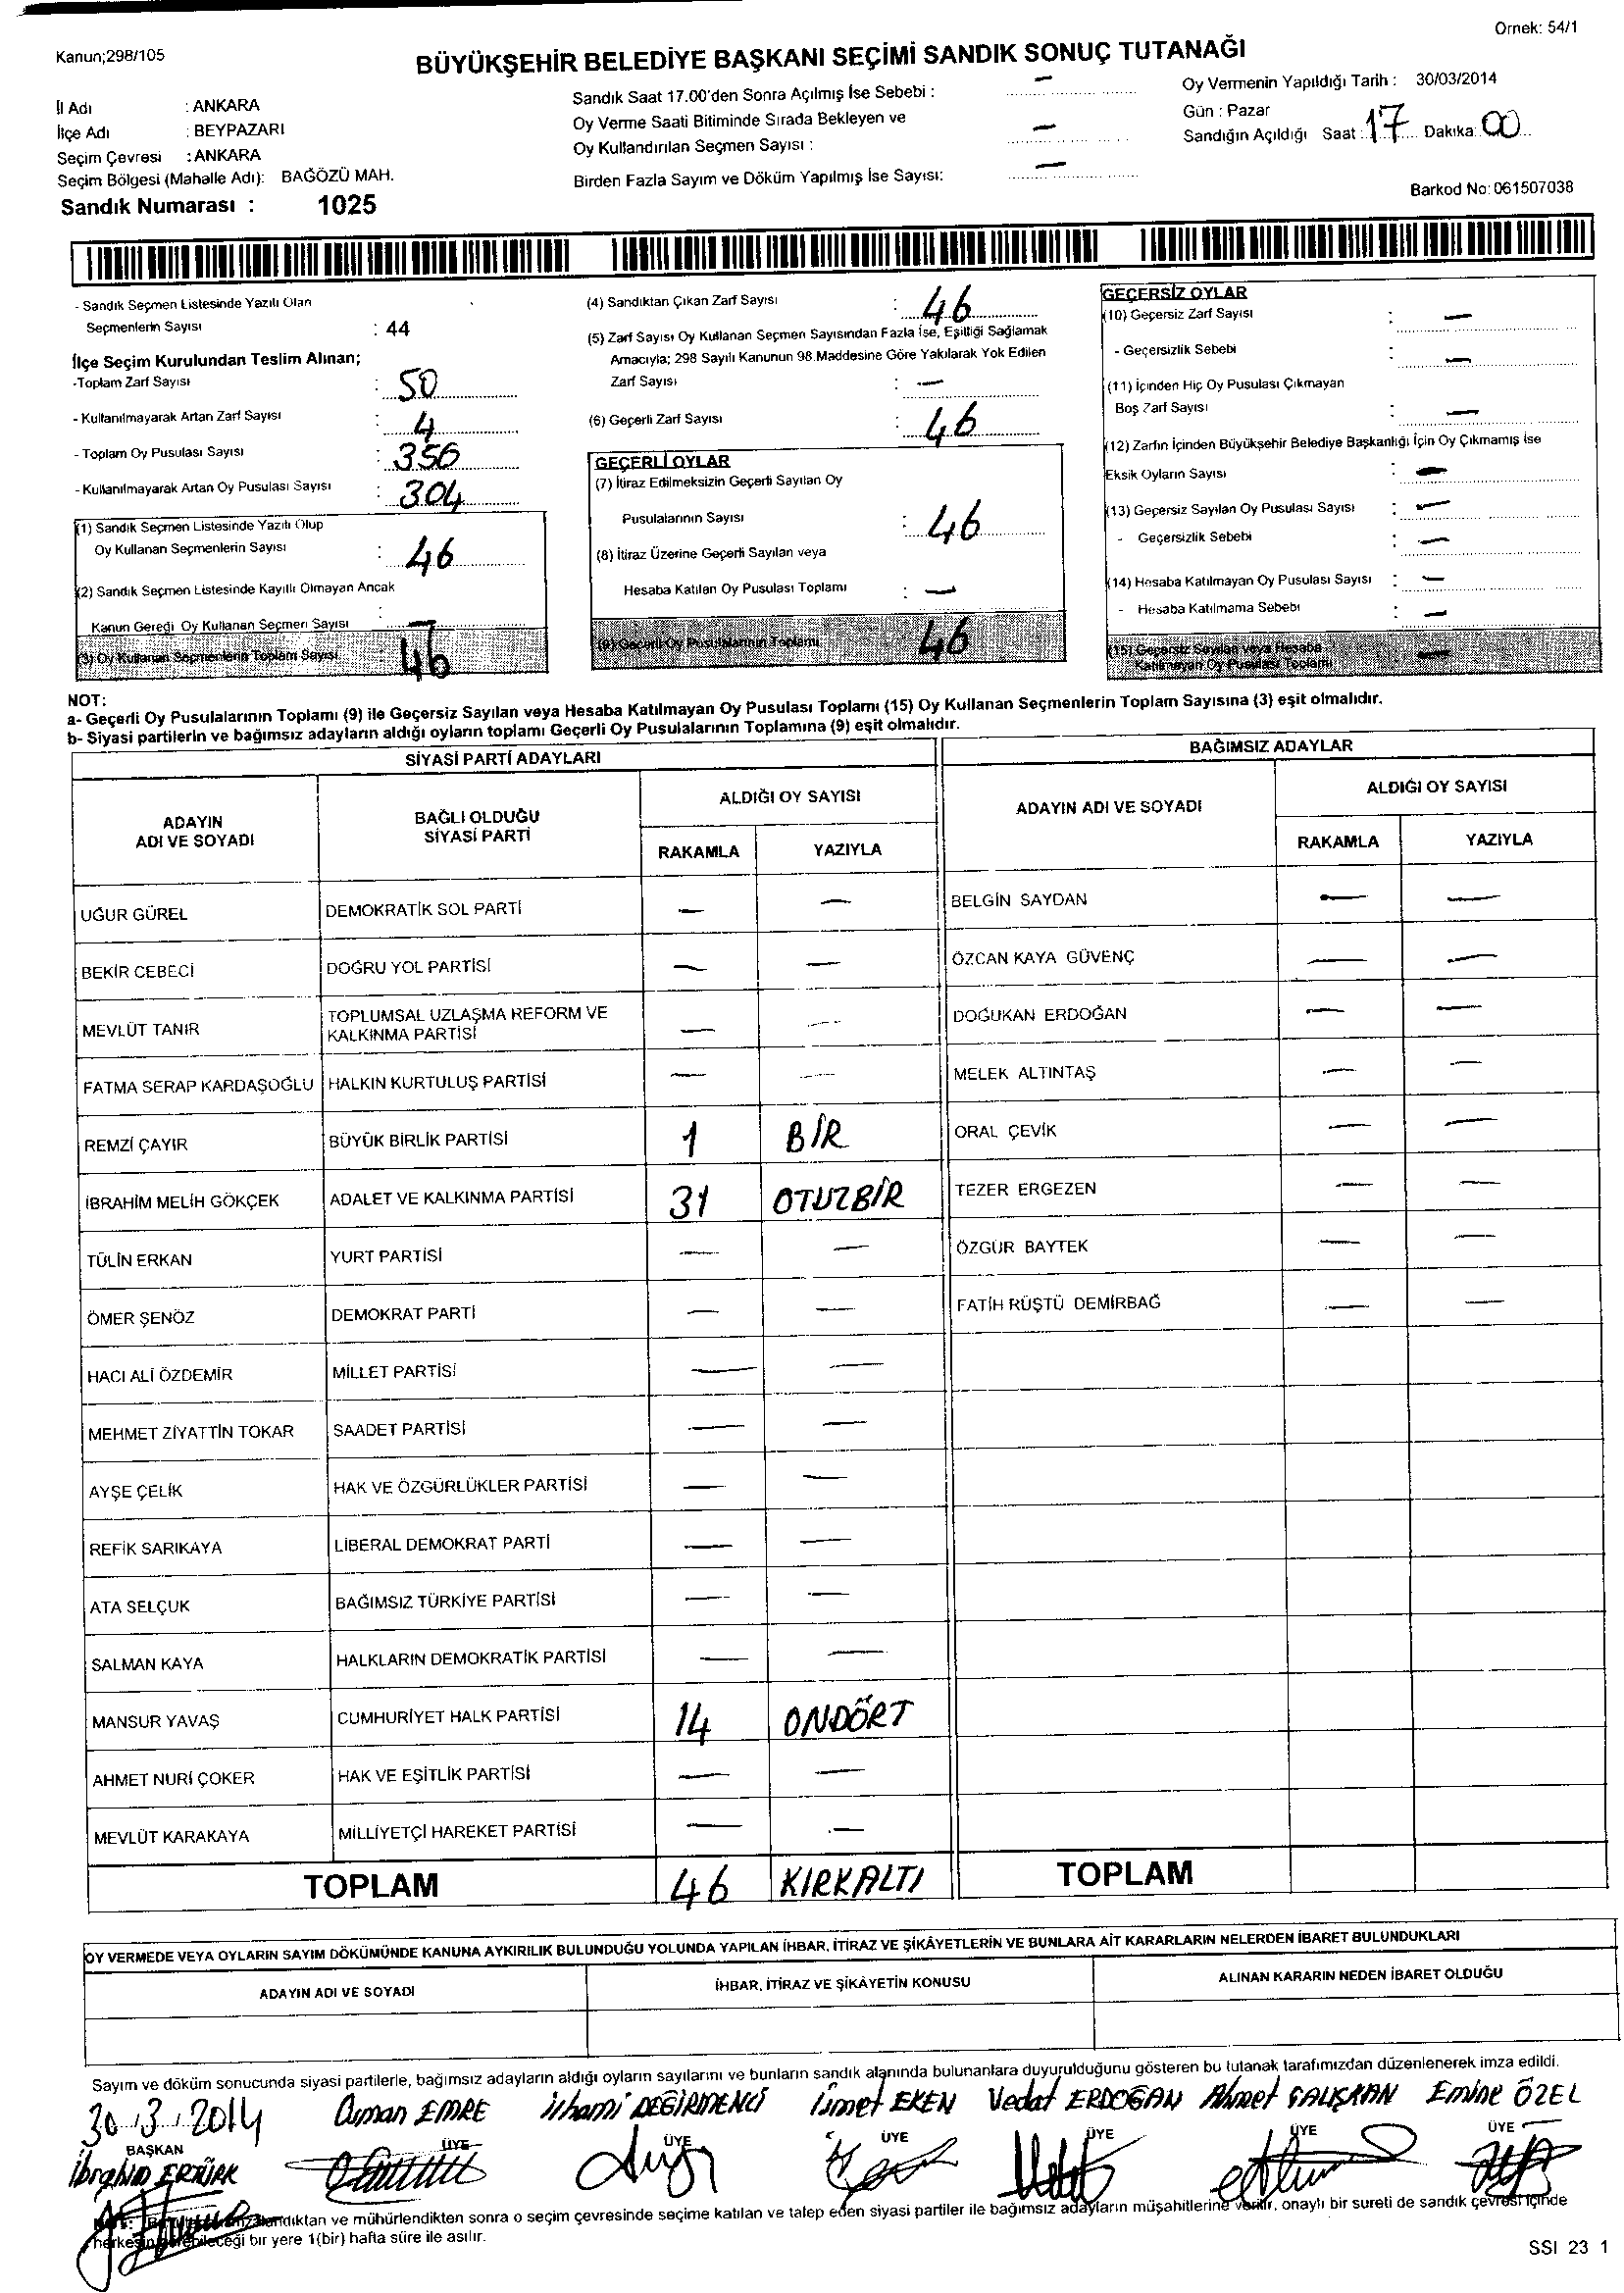 Örnek: 54/1
Kanun;298/105
BÜYÜKŞEHİR BELEDİYE BAŞKANI SEÇİMİ SANDIK SONUÇ TUTANAĞI
İl Adı : ANKARA
İlçe Adı : BEYPAZARI
Seçim Çevresi : ANKARA
Seçim Bölgesi (Mahalle Adı): BAĞÖZÜ MAH.
Sandık Numarası : 1025
Sandık Saat 17.00'den Sonra Açılmış İse Sebebi : —
Oy Verme Saati Bitiminde Sırada Bekleyen ve
Oy Kullandırılan Seçmen Sayısı : —
Birden Fazla Sayım ve Döküm Yapılmış İse Sayısı: —
Oy Vermenin Yapıldığı Tarih : 30/03/2014
Gün : Pazar
Sandığın Açıldığı Saat : 17 Dakika: 00
Barkod No: 061507038
- Sandık Seçmen Listesinde Yazılı Olan
Seçmenlerin Sayısı : 44
İlçe Seçim Kurulundan Teslim Alınan;
-Toplam Zarf Sayısı : 50
- Kullanılmayarak Artan Zarf Sayısı : 4
- Toplam Oy Pusulası Sayısı : 350
- Kullanılmayarak Artan Oy Pusulası Sayısı : 304
(1) Sandık Seçmen Listesinde Yazılı Olup
Oy Kullanan Seçmenlerin Sayısı : 46
(2) Sandık Seçmen Listesinde Kayıtlı Olmayan Ancak
Kanun Gereği Oy Kullanan Seçmen Sayısı : —
(3) Oy Kullanan Seçmenlerin Toplam Sayısı : 46
(4) Sandıktan Çıkan Zarf Sayısı : 46
(5) Zarf Sayısı Oy Kullanan Seçmen Sayısından Fazla İse, Eşitliği Sağlamak
Amacıyla; 298 Sayılı Kanunun 98.Maddesine Göre Yakılarak Yok Edilen
Zarf Sayısı : —
(6) Geçerli Zarf Sayısı : 46
GEÇERLİ OYLAR
(7) İtiraz Edilmeksizin Geçerli Sayılan Oy
Pusulalarının Sayısı : 46
(8) İtiraz Üzerine Geçerli Sayılan veya
Hesaba Katılan Oy Pusulası Toplamı : —
(9) Geçerli Oy Pusulalarının Toplamı 46
GEÇERSİZ OYLAR
(10) Geçersiz Zarf Sayısı : —
- Geçersizlik Sebebi : —
(11) İçinden Hiç Oy Pusulası Çıkmayan
Boş Zarf Sayısı : —
(12) Zarfın İçinden Büyükşehir Belediye Başkanlığı İçin Oy Çıkmamış ise
Eksik Oyların Sayısı : —
(13) Geçersiz Sayılan Oy Pusulası Sayısı : —
- Geçersizlik Sebebi : —
(14) Hesaba Katılmayan Oy Pusulası Sayısı : —
- Hesaba Katılmama Sebebi : —
(15) Geçersiz Sayılan veya Hesaba
Katılmayan Oy Pusulası Toplamı —
NOT:
a- Geçerli Oy Pusulalarının Toplamı (9) ile Geçersiz Sayılan veya Hesaba Katılmayan Oy Pusulası Toplamı (15) Oy Kullanan Seçmenlerin Toplam Sayısına (3) eşit olmalıdır.
b- Siyasi partilerin ve bağımsız adayların aldığı oyların toplamı Geçerli Oy Pusulalarının Toplamına (9) eşit olmalıdır.
SİYASİ PARTİ ADAYLARI BAĞIMSIZ ADAYLAR
ADAYIN ADI VE SOYADI BAĞLI OLDUĞU SİYASİ PARTİ ALDIĞI OY SAYISI ADAYIN ADI VE SOYADI ALDIĞI OY SAYISI
RAKAMLA YAZIYLA RAKAMLA YAZIYLA
UĞUR GÜREL DEMOKRATİK SOL PARTİ — — BELGİN SAYDAN — —
BEKİR CEBECİ DOĞRU YOL PARTİSİ — — ÖZCAN KAYA GÜVENÇ — —
MEVLÜT TANIR TOPLUMSAL UZLAŞMA REFORM VE KALKINMA PARTİSİ — — DOĞUKAN ERDOĞAN — —
FATMA SERAP KARDAŞOĞLU HALKIN KURTULUŞ PARTİSİ — — MELEK ALTINTAŞ — —
REMZİ ÇAYIR BÜYÜK BİRLİK PARTİSİ 1 BİR ORAL ÇEVİK — —
İBRAHİM MELİH GÖKÇEK ADALET VE KALKINMA PARTİSİ 31 OTUZBİR TEZER ERGEZEN — —
TÜLİN ERKAN YURT PARTİSİ — — ÖZGÜR BAYTEK — —
ÖMER ŞENÖZ DEMOKRAT PARTİ — — FATİH RÜŞTÜ DEMİRBAĞ — —
HACI ALİ ÖZDEMİR MİLLET PARTİSİ — —
MEHMET ZİYATTİN TOKAR SAADET PARTİSİ — —
AYŞE ÇELİK HAK VE ÖZGÜRLÜKLER PARTİSİ — —
REFİK SARIKAYA LİBERAL DEMOKRAT PARTİ — —
ATA SELÇUK BAĞIMSIZ TÜRKİYE PARTİSİ — —
SALMAN KAYA HALKLARIN DEMOKRATİK PARTİSİ — —
MANSUR YAVAŞ CUMHURİYET HALK PARTİSİ 14 ONDÖRT
AHMET NURİ ÇOKER HAK VE EŞİTLİK PARTİSİ — —
MEVLÜT KARAKAYA MİLLİYETÇİ HAREKET PARTİSİ — —
TOPLAM 46 KIRKALTI TOPLAM
OY VERMEDE VEYA OYLARIN SAYIM DÖKÜMÜNDE KANUNA AYKIRILIK BULUNDUĞU YOLUNDA YAPILAN İHBAR, İTİRAZ VE ŞİKÂYETLERİN VE BUNLARA AİT KARARLARIN NELERDEN İBARET BULUNDUKLARI
ADAYIN ADI VE SOYADI İHBAR, İTİRAZ VE ŞİKÂYETİN KONUSU ALINAN KARARIN NEDEN İBARET OLDUĞU
Sayım ve döküm sonucunda siyasi partilerle, bağımsız adayların aldığı oyların sayılarını ve bunların sandık alanında bulunanlara duyurulduğunu gösteren bu tutanak tarafımızdan düzenlenerek imza edildi.
30.3.2014 Osman EMRE ilhami DEĞİRMENCİ ismet EKEN Vedat ERDOĞAN Ahmet ÇALIŞKAN Emine ÖZEL
BAŞKAN ÜYE ÜYE ÜYE ÜYE ÜYE ÜYE
İbrahim ERTÜRK
ve mühürlendikten sonra o seçim çevresinde seçime katılan ve talep eden siyasi partiler ile bağımsız adayların müşahitlerine verilir, onaylı bir sureti de sandık çevresi içinde
herkesin görebileceği bir yere 1(bir) hafta süre ile asılır.
SSI 23 1